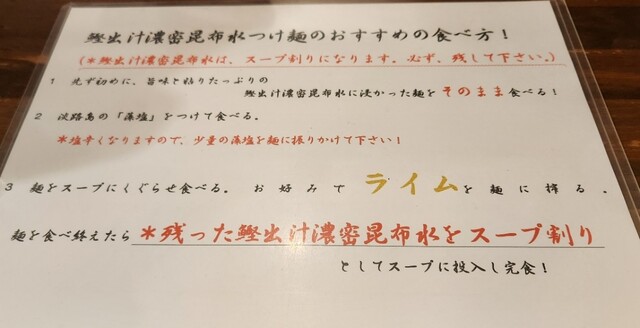 鰹出汁濃密昆布水つけ麺のおすすめの食べ方！
（＊鰹出汁濃密昆布水は、スープ割りになります。必ず、残して下さい。）
1 先ず初めに、旨味と粘りたっぷりの
鰹出汁濃密昆布水に浸かった麺をそのまま食べる！
2 淡路島の「藻塩」をつけて食べる。
＊塩辛くなりますので、少量の藻塩を麺に振りかけて下さい！
3 麺をスープにくぐらせ食べる。お好みでライムを麺に搾る。
麺を食べ終えたら＊残った鰹出汁濃密昆布水をスープ割り
としてスープに投入し完食！